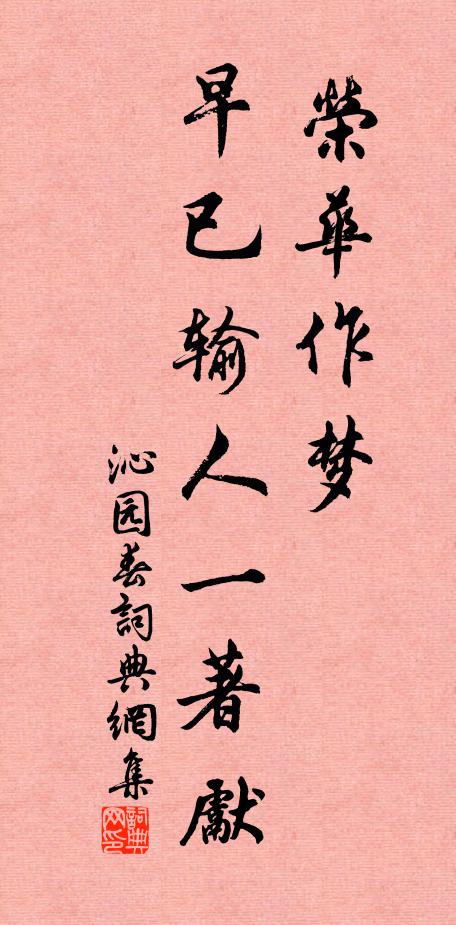 榮華作梦
早已输人一著獻
沁园春詞典網集
詞典网印